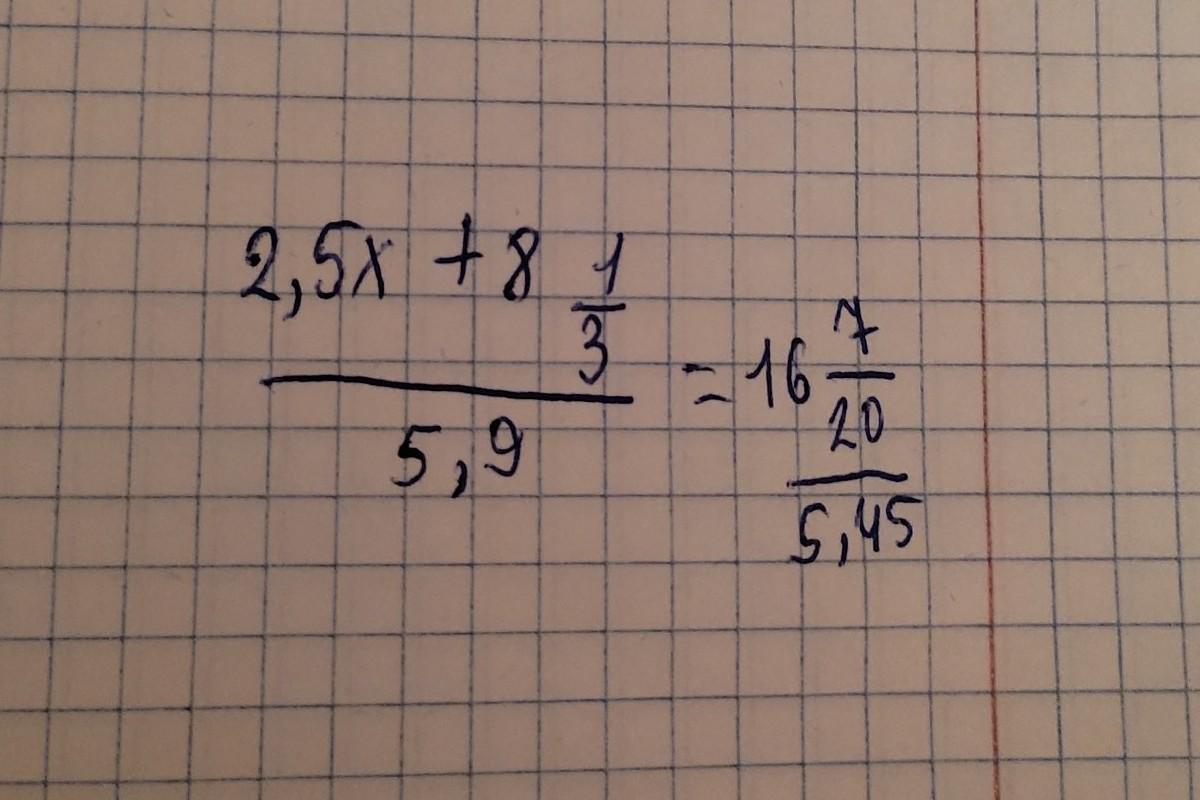 2,5x + 8 1/3
5,9
= 16 7/20
5,45